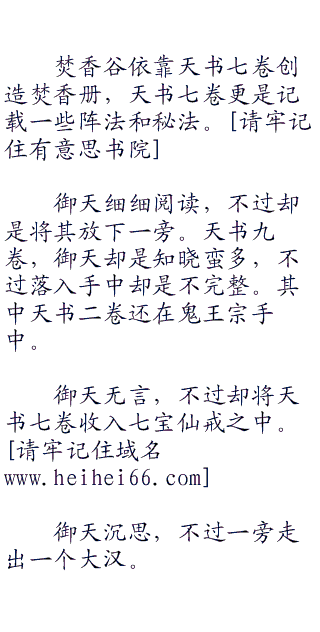 焚香谷依靠天书七卷创
造焚香册，天书七卷更是记
载一些阵法和秘法。[请牢记
住有意思书院]
御天细细阅读，不过却
是将其放下一旁。天书九
卷，御天却是知晓蛮多，不
过落入手中却是不完整。其
中天书二卷还在鬼王宗手
中。
御天无言，不过却将天
书七卷收入七宝仙戒之中。
[请牢记住域名
www.heihei66.com]
御天沉思，不过一旁走
出一个大汉。